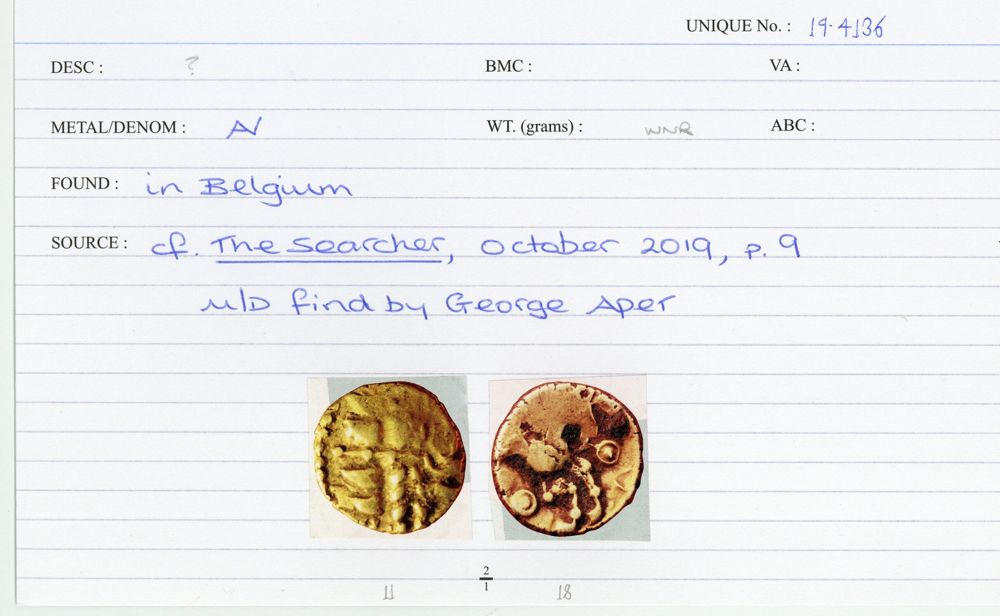 UNIQUE No. : 19·4136
DESC : ? BMC : VA :
METAL/DENOM : AV WT. (grams) : WNR ABC :
FOUND : in Belgium
SOURCE : cf. The Searcher, October 2019, p. 9
M/D find by George Aper
2
1
11 18